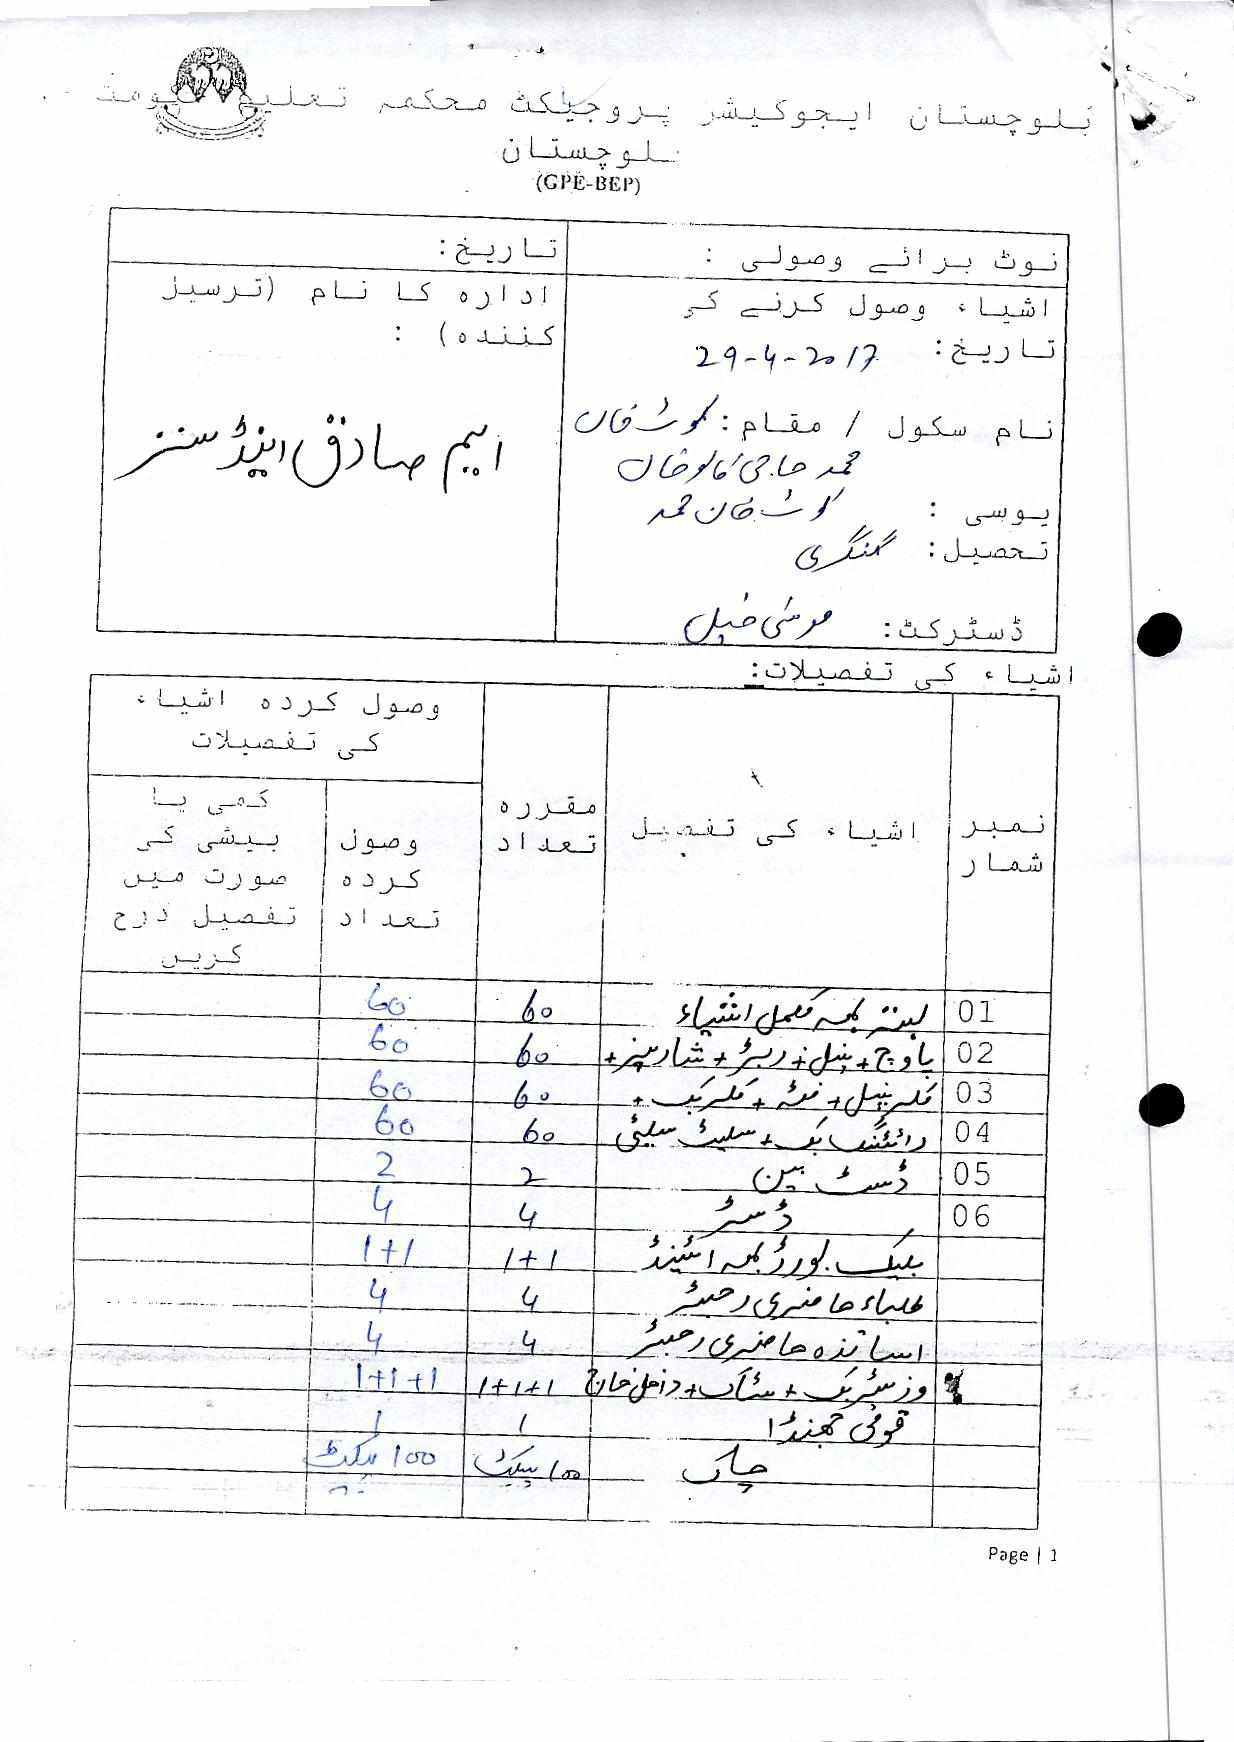 بلوچستان ایجوکیشن پروجیکٹ محکمہ تعلیم حکومت
بلوچستان
(GPE-BEP)
نوٹ برائے وصولی :
تاریخ:
اشیاء وصول کرنے کی
تاریخ: 29-4-2017
نام سکول / مقام :
محمد حاجی کالوخان
یوسی :
تحصیل: کنگری
ڈسٹرکٹ: موسیٰ خیل
ادارہ کا نام (ترسیل
کنندہ) :
ایم صادق اینڈ سنز
اشیاء کی تفصیلات:
نمبر شمار
اشیاء کی تفصیل
مقررہ تعداد
وصول کردہ اشیاء کی تفصیلات
وصول کردہ تعداد
کمی یا بیشی کی صورت میں تفصیل درج کریں
01 بستہ بمعہ مکمل اشیاء 60 60
02 پاوچ + پنسل + ربڑ + شارپنر + 60 60
03 کلر پنسل + فٹہ + کلر بک + 60 60
04 رائٹنگ بک + سلیٹ سلیٹی 60 60
05 ڈسٹ بین 2 2
06 ڈسٹر 4 4
بلیک بورڈ بمعہ اسٹینڈ 1+1 1+1
طلباء حاضری رجسٹر 4 4
اساتذہ حاضری رجسٹر 4 4
وزیٹر بک + سٹاک + داخل خارج 1+1+1 1+1+1
قومی جھنڈا 1 1
چاک 100 پیکٹ 100 پیکٹ
Page | 1